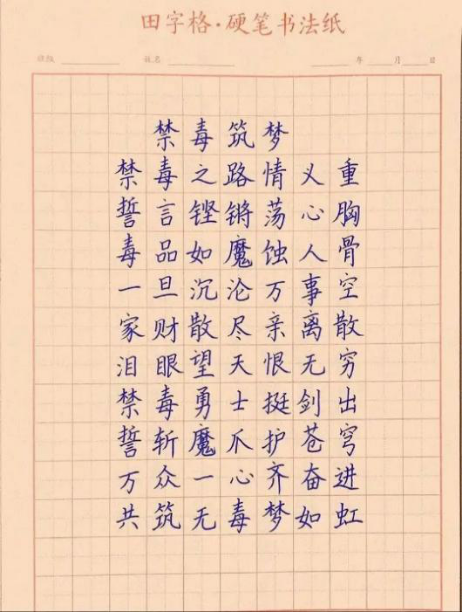 田字格·硬笔书法纸
班级 姓名 年 月 日
禁毒筑梦
禁毒之路情义重
誓言铿锵荡心胸
毒品如魔蚀人骨
一旦沉沦万事空
家财散尽亲离散
泪眼望天恨无穷
禁毒勇士挺剑出
誓斩魔爪护苍穹
万众一心齐奋进
共筑无毒梦如虹